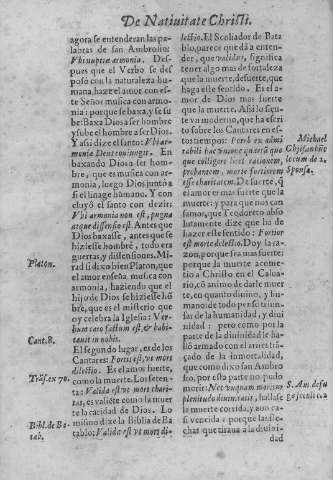 De Natiuitate Christi.
agora se entenderan las pa-
labras de san Ambrosio:
Vbi nuptiæ armonia. Des-
pues que el Verbo se des-
posò con la naturaleza hu-
mana, haze el amor con es-
te Señor musica con armo-
nia: porque se baxa, y se su-
be: Baxa Dios a ser hombre
y sube el hombre a ser Dios.
Y assi dize el santo: Vbi ar-
monia Deus coniungit. En
baxando Dios a ser hom-
bre, que es musica con ar-
monia, luego Dios juntò à
si el linage humano. Y con-
cluyò el santo con dezir:
Vbi armonia non est, pugna
atque dissensio est. Antes que
Dios baxasse, antes que se
hiziesse hombre, todo era
guerras, y dissensiones. Mi-
rad si dixo bien Platon, que
el amor enseña musica con
armonia, haziendo que el
hijo de Dios se hiziesse hõ
bre, que es el misterio que
oy celebra la Iglesia: Ver-
bum caro factum est, & habi-
tauit in nobis.
El segundo lugar, es de los
Cantares: Fortis est, vt mors
dilectio. Es el amor fuerte,
como la muerte. Los seten-
ta: Valida est vt mors chari-
tas, es valiẽte como la muer
te la caridad de Dios. Lo
mismo dize la Biblia de Ba
tablo: Valida est vt mors di-
Platon.
Cant. 8.
Trãs. ex 70.
Bibl. de Ba-
tab.
lectio. El Scoliador de Bata
blo, parece que dà a enten-
der, que validus, significa
tener algo mas de fortaleza
que la muerte, de suerte, que
haga este sentido. Es el a-
mor de Dios mas fuerte
que la muerte. Assi lo siẽ-
te vn moderno, que ha escri
to sobre los Cantares en es-
tos tiempos: Verbo ex admi
rabili hac
que colligere licet rationem,
probantem, morte fortiorem
esse charitatem. De suerte, q̃
el amor es mas fuerte que la
muerte: y para que nos can
samos, que Teodoreto abso
lutamente dize que ha de
hazer esse sentido: Fortior
est morte delectio. Doy la ra-
zon, porque sea mas fuerte:
porque la muerte acome-
tio a Christo en el Calua-
rio, cõ animo de darle muer
te, en quanto diuino, y hu-
mano: de todo pensò triunf-
ar de la humanidad, y diui-
nidad: pero como por la
parte de la diuinidad le ha-
llò armado con el arnes trã-
çado de la inmortalidad,
que como dixo san Ambro
sio, por esta parte no pudo
morir: Nec vnquam moritur
plenitudo diuinitatis, hallas-
se la muerte corrida, y aun ca
si vencida: porque las fle-
chas que tiraua a la diuini-
dad
Michael
lecum de 2.
Sponsa.
S. Am